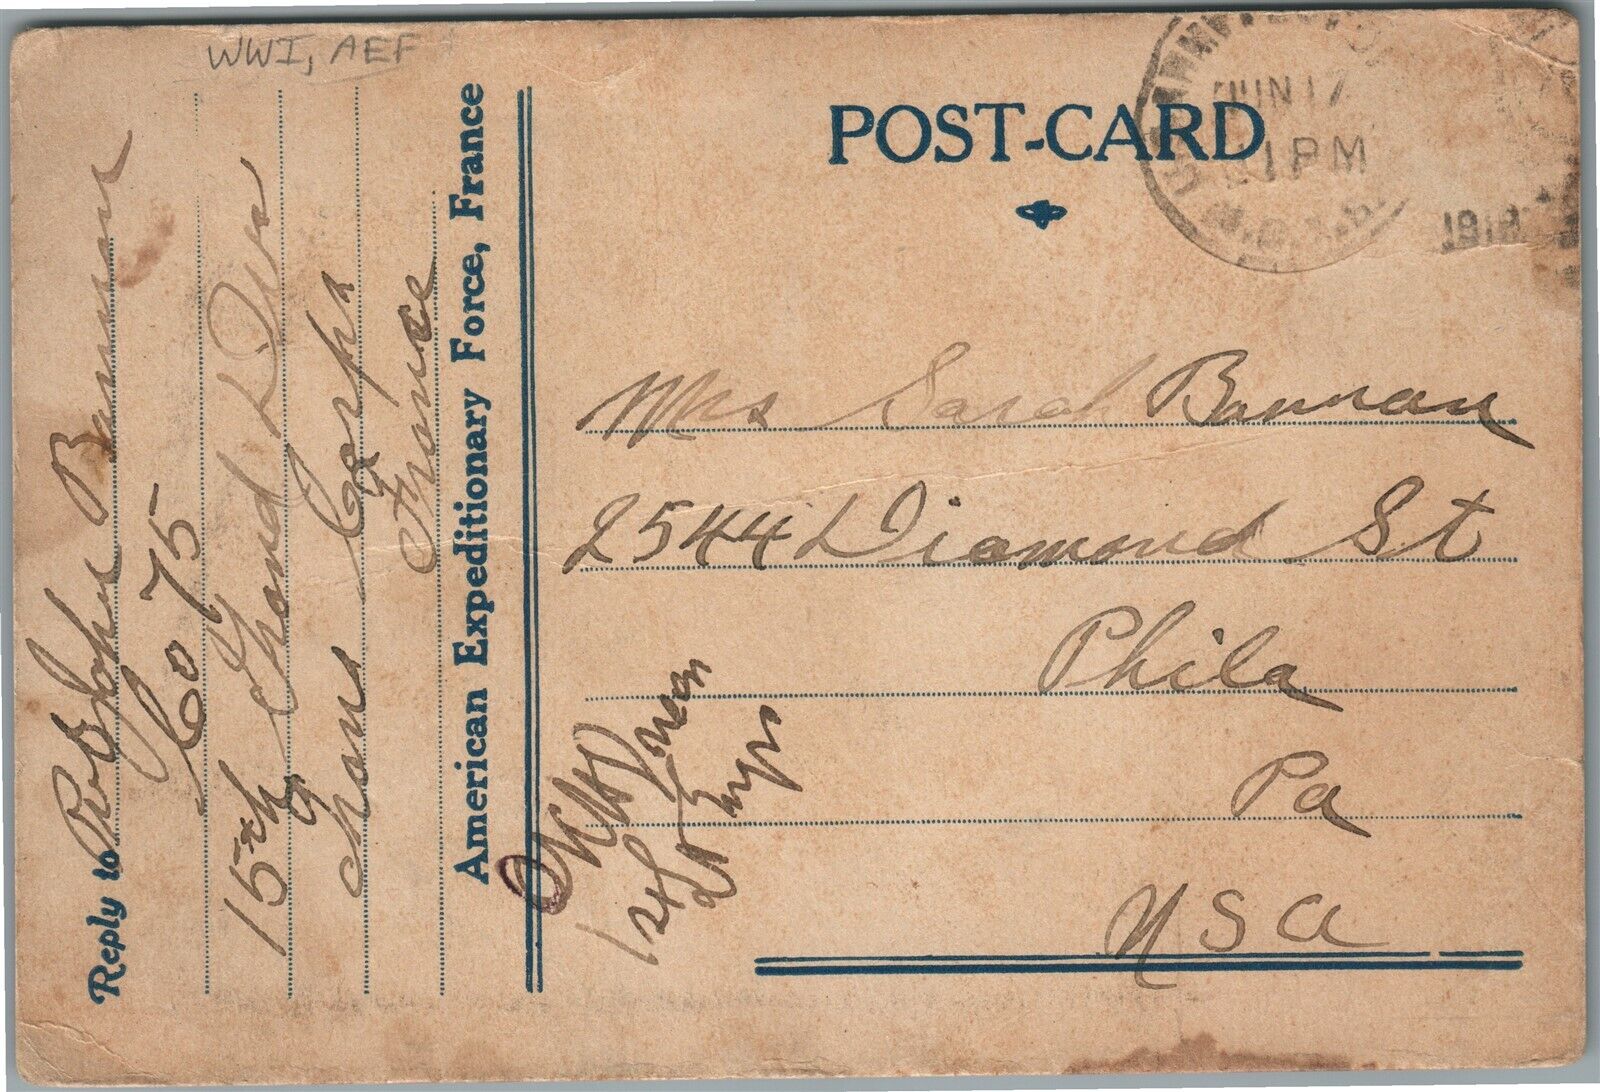 WWI, AEF
POST-CARD
JUN 17
1PM
1918
Reply to Pvt John Bannan
Co 75
15th Grand Div
Trans Corps
France
American Expeditionary Force, France
Mrs Sarah Bannan
2544 Diamond St
Phila
Pa
USA
OK
1st Lt
Engrs